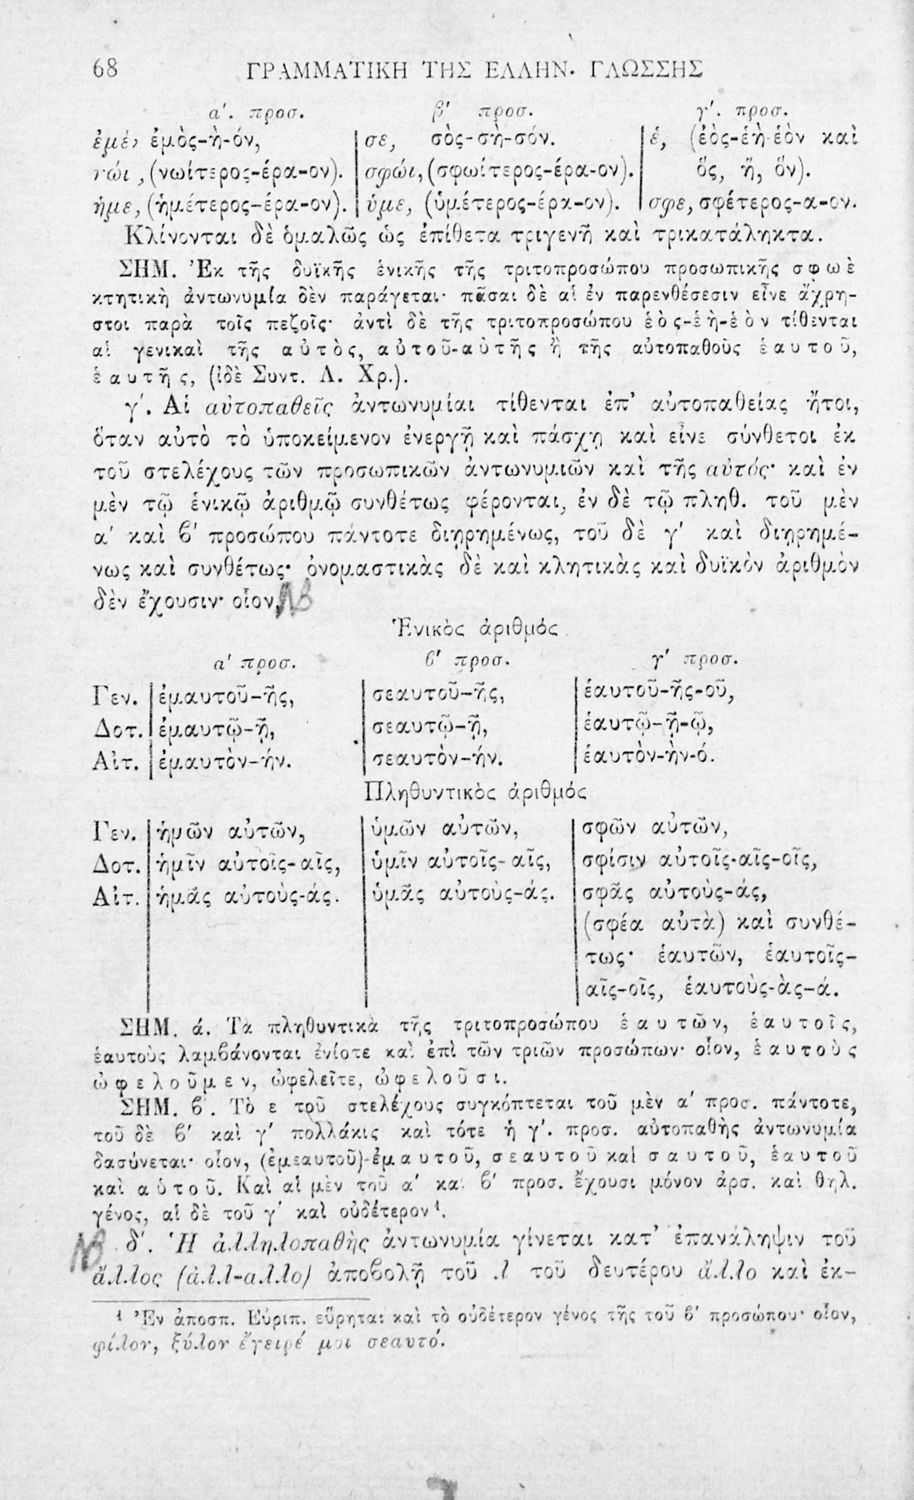 68 ΓΡΑΜΜΑΤΙΚΗ ΤΗΣ ΕΛΛΗΝ. ΓΛΩΣΣΗΣ
α'. προσ. β' προσ. γ'. προσ.
ἐμὲ, ἐμὸς-ὴ-όν, σε, σὸς-σὴ-σόν. ἑ, (ἑὸς-ἑὴ-ἑὸν καὶ
νώϊ, (νωΐτερος-έρα-ον). σφώϊ, (σφωΐτερος-έρα-ον). ὃς, ἥ, ὃν).
ἡμε, (ἡμέτερος-έρα-ον). ὑμε, (ὑμέτερος-έρα-ον). σφε, σφέτερος-α-ον.
Κλίνονται δὲ ὁμαλῶς ὡς ἐπίθετα τριγενῆ καὶ τρικατάληκτα.
ΣΗΜ. Ἐκ τῆς δυϊκῆς ἑνικῆς τῆς τριτοπροσώπου προσωπικῆς σφωὲ
κτητικὴ ἀντωνυμία δὲν παράγεται· πᾶσαι δὲ αἱ ἐν παρενθέσεσιν εἶνε ἄχρη-
στοι παρὰ τοῖς πεζοῖς· ἀντὶ δὲ τῆς τριτοπροσώπου ἑὸς-ἑὴ-ἑὸν τίθενται
αἱ γενικαὶ τῆς αὐτὸς, αὐτοῦ-αὐτῆς ἢ τῆς αὐτοπαθοῦς ἑαυτοῦ,
ἑαυτῆς, (ἰδὲ Συντ. Λ. Χρ.).
γ'. Αἱ αὐτοπαθεῖς ἀντωνυμίαι τίθενται ἐπ' αὐτοπαθείας ἤτοι,
ὅταν αὐτὸ τὸ ὑποκείμενον ἐνεργῇ καὶ πάσχῃ καὶ εἶνε σύνθετοι ἐκ
τοῦ στελέχους τῶν προσωπικῶν ἀντωνυμιῶν καὶ τῆς αὐτός· καὶ ἐν
μὲν τῷ ἑνικῷ ἀριθμῷ συνθέτως φέρονται, ἐν δὲ τῷ πληθ. τοῦ μὲν
α' καὶ β' προσώπου πάντοτε διῃρημένως, τοῦ δὲ γ' καὶ διῃρημέ-
νως καὶ συνθέτως· ὀνομαστικὰς δὲ καὶ κλητικὰς καὶ δυϊκὸν ἀριθμὸν
δὲν ἔχουσιν· οἷον, NB
Ἑνικὸς ἀριθμός
α' προσ. β' προσ. γ' προσ.
Γεν. ἐμαυτοῦ-ῆς, σεαυτοῦ-ῆς, ἑαυτοῦ-ῆς-οῦ,
Δοτ. ἐμαυτῷ-ῇ, σεαυτῷ-ῇ, ἑαυτῷ-ῇ-ῷ,
Αἰτ. ἐμαυτὸν-ήν. σεαυτὸν-ήν. ἑαυτὸν-ὴν-ό.
Πληθυντικὸς ἀριθμός
Γεν. ἡμῶν αὐτῶν, ὑμῶν αὐτῶν, σφῶν αὐτῶν,
Δοτ. ἡμῖν αὐτοῖς-αῖς, ὑμῖν αὐτοῖς-αῖς, σφίσιν αὐτοῖς-αῖς-οῖς,
Αἰτ. ἡμᾶς αὐτοὺς-άς. ὑμᾶς αὐτοὺς-άς. σφᾶς αὐτοὺς-άς,
(σφέα αὐτὰ) καὶ συνθέ-
τως· ἑαυτῶν, ἑαυτοῖς-
αῖς-οῖς, ἑαυτοὺς-ὰς-ά.
ΣΗΜ. ά. Τὰ πληθυντικὰ τῆς τριτοπροσώπου ἑαυτῶν, ἑαυτοῖς,
ἑαυτοὺς λαμβάνονται ἐνίοτε καὶ ἐπὶ τῶν τριῶν προσώπων· οἷον, ἑαυτοὺς
ὠφελοῦμεν, ὠφελεῖτε, ὠφελοῦσι.
ΣΗΜ. β'. Τὸ ε τοῦ στελέχους συγκόπτεται τοῦ μὲν α' προσ. πάντοτε,
τοῦ δὲ β' καὶ γ' πολλάκις καὶ τότε ἡ γ'. προσ. αὐτοπαθὴς ἀντωνυμία
δασύνεται· οἷον, (ἐμεαυτοῦ)-ἐμαυτοῦ, σεαυτοῦ καὶ σαυτοῦ, ἑαυτοῦ
καὶ αὑτοῦ. Καὶ αἱ μὲν τοῦ α' καὶ β' προσ. ἔχουσι μόνον ἀρσ. καὶ θηλ.
γένος, αἱ δὲ τοῦ γ' καὶ οὐδέτερον¹.
NB δ'. Ἡ ἀλληλοπαθὴς ἀντωνυμία γίνεται κατ' ἐπανάληψιν τοῦ
ἄλλος (ἀλλ-αλλο) ἀποβολῇ τοῦ λ τοῦ δευτέρου ἄλλο καὶ ἐκ-
¹ Ἐν ἀποσπ. Εὐριπ. εὕρηται καὶ τὸ οὐδέτερον γένος τῆς τοῦ β' προσώπου· οἷον,
φίλον, ξύλον ἔγειρέ μοι σεαυτό.